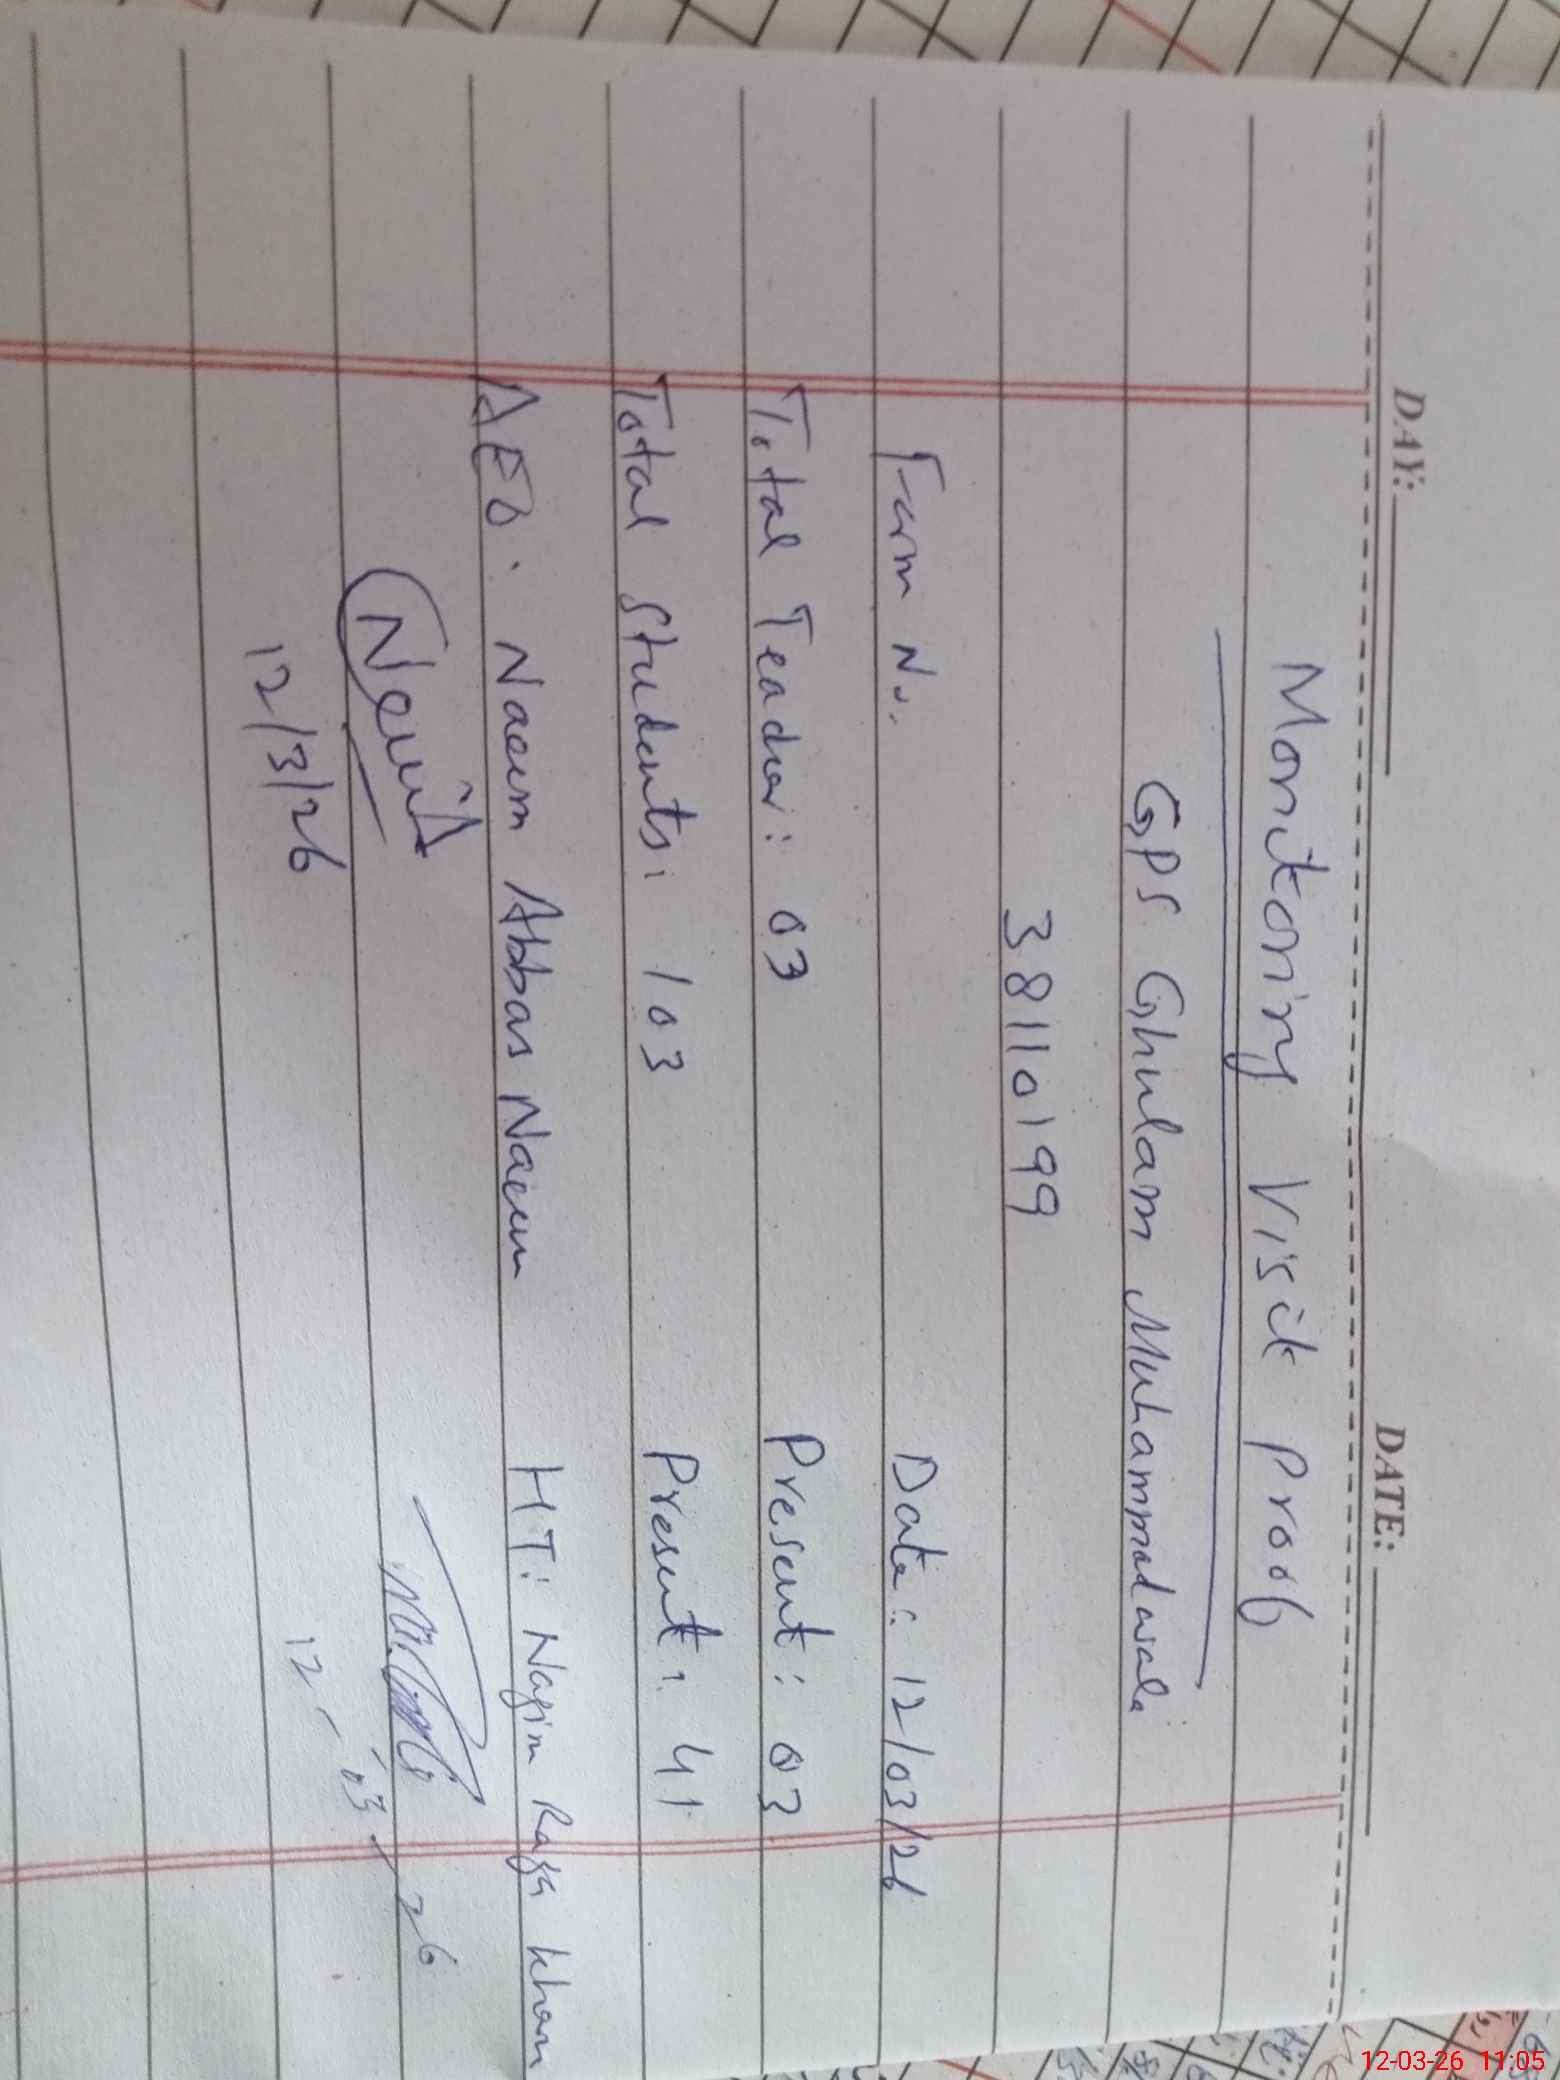 DAY: DATE:
Monitoring Visit Proof
GPS Ghulam Muhammad wala
38110199
Form No. Date: 12/03/26
Total Teacher: 03 Present: 03
Total Students: 103 Present: 41
AEO. Naeem Abbas Naeem HT: Nagim Raza Khan
12/3/26 12-03-26
12-03-26 11:05